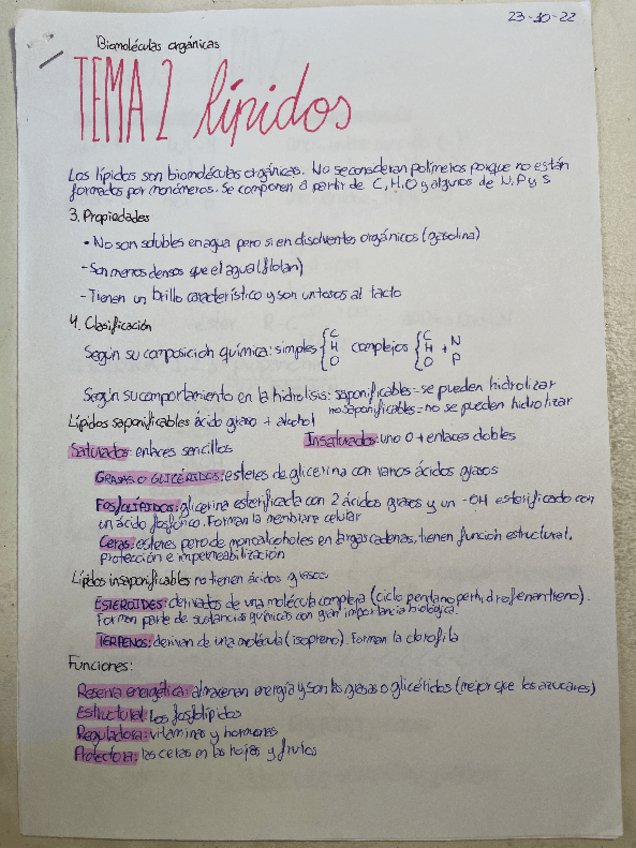 23-10-22
Biomoléculas orgánicas
TEMA 2 lípidos
Los lípidos son biomoléculas orgánicas. No se consideran polímeros porque no están
formados por monómeros. Se componen a partir de C, H, O y algunos de N, P y S
3. Propiedades
• No son solubles en agua pero si en disolventes orgánicos (gasolina)
- Son menos densos que el agua (flotan)
- Tienen un brillo característico y son untosos al tacto
4. Clasificación
Según su composición química: simples { C H O complejos { C H O + N P
Según su comportamiento en la hidrolisis: saponificables = se pueden hidrolizar
no saponificables = no se pueden hidrolizar
Lípidos saponificables ácido graso + alcohol
Saturados: enlaces sencillos Insaturados: uno o + enlaces dobles
GRASAS O GLICÉRIDOS: esteres de glicerina con varios ácidos grasos
Fosfolípidos: glicerina esterificada con 2 ácidos grasos y un -OH esterificado con
un ácido fosfórico. Forman la membrana celular
Ceras: esteres pero de monoalcoholes en largas cadenas, tienen función estructural.
Protección e impermeabilización
Lípidos insaponificables no tienen ácidos grasos
ESTEROIDES: derivados de una molécula compleja (ciclo pentano perhidrofenantreno).
Forman parte de sustancias químicas con gran importancia biológica.
TERPENOS: derivan de una molécula (isopreno). Forman la clorofila
Funciones:
Reserva energética: almacenan energía y son las grasas o glicéridos (mejor que los azucares)
Estructural: Los fosfolípidos
Reguladora: vitaminas y hormonas
Protectora: las ceras en las hojas y frutos